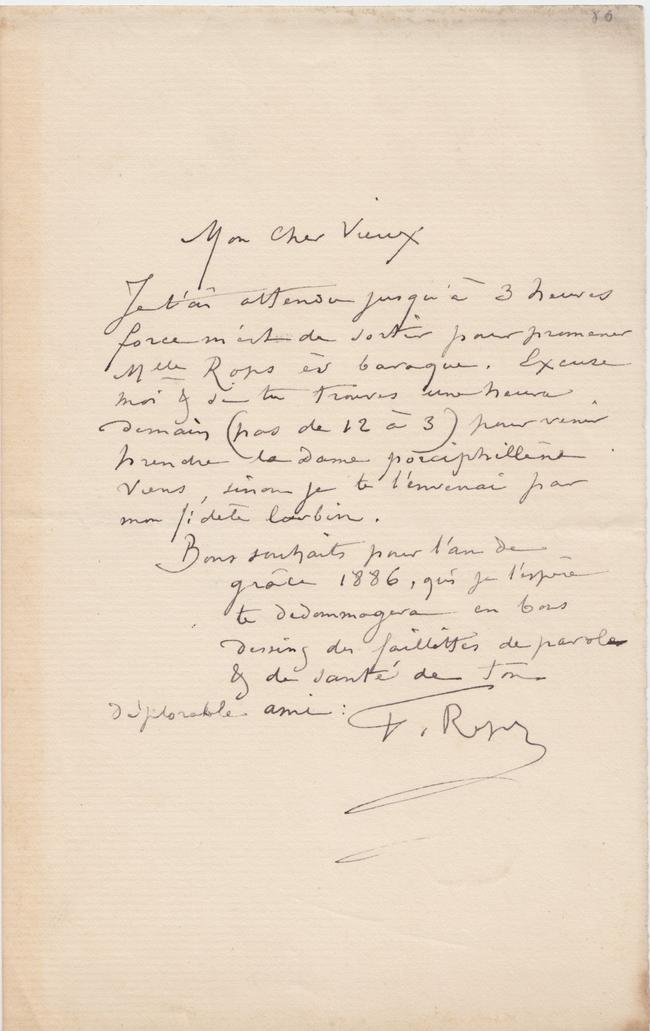 86
Mon cher Vieux
Je t'ai attendu jusqu'à 3 heures
force m'est de sortir pour promener
Mlle Rops ès baraque. Excuse
moi & si tu trouves une heure
demain (pas de 12 à 3) pour venir
prendre la Dame
viens, sinon je te l'enverrai par
mon fidèle larbin.
Bons souhaits pour l'an de
grâce 1886, qui je l'espère
te dedommagera en bons
dessins des faillittes de parole
& de santé de ton
déplorable ami :
F. Rops